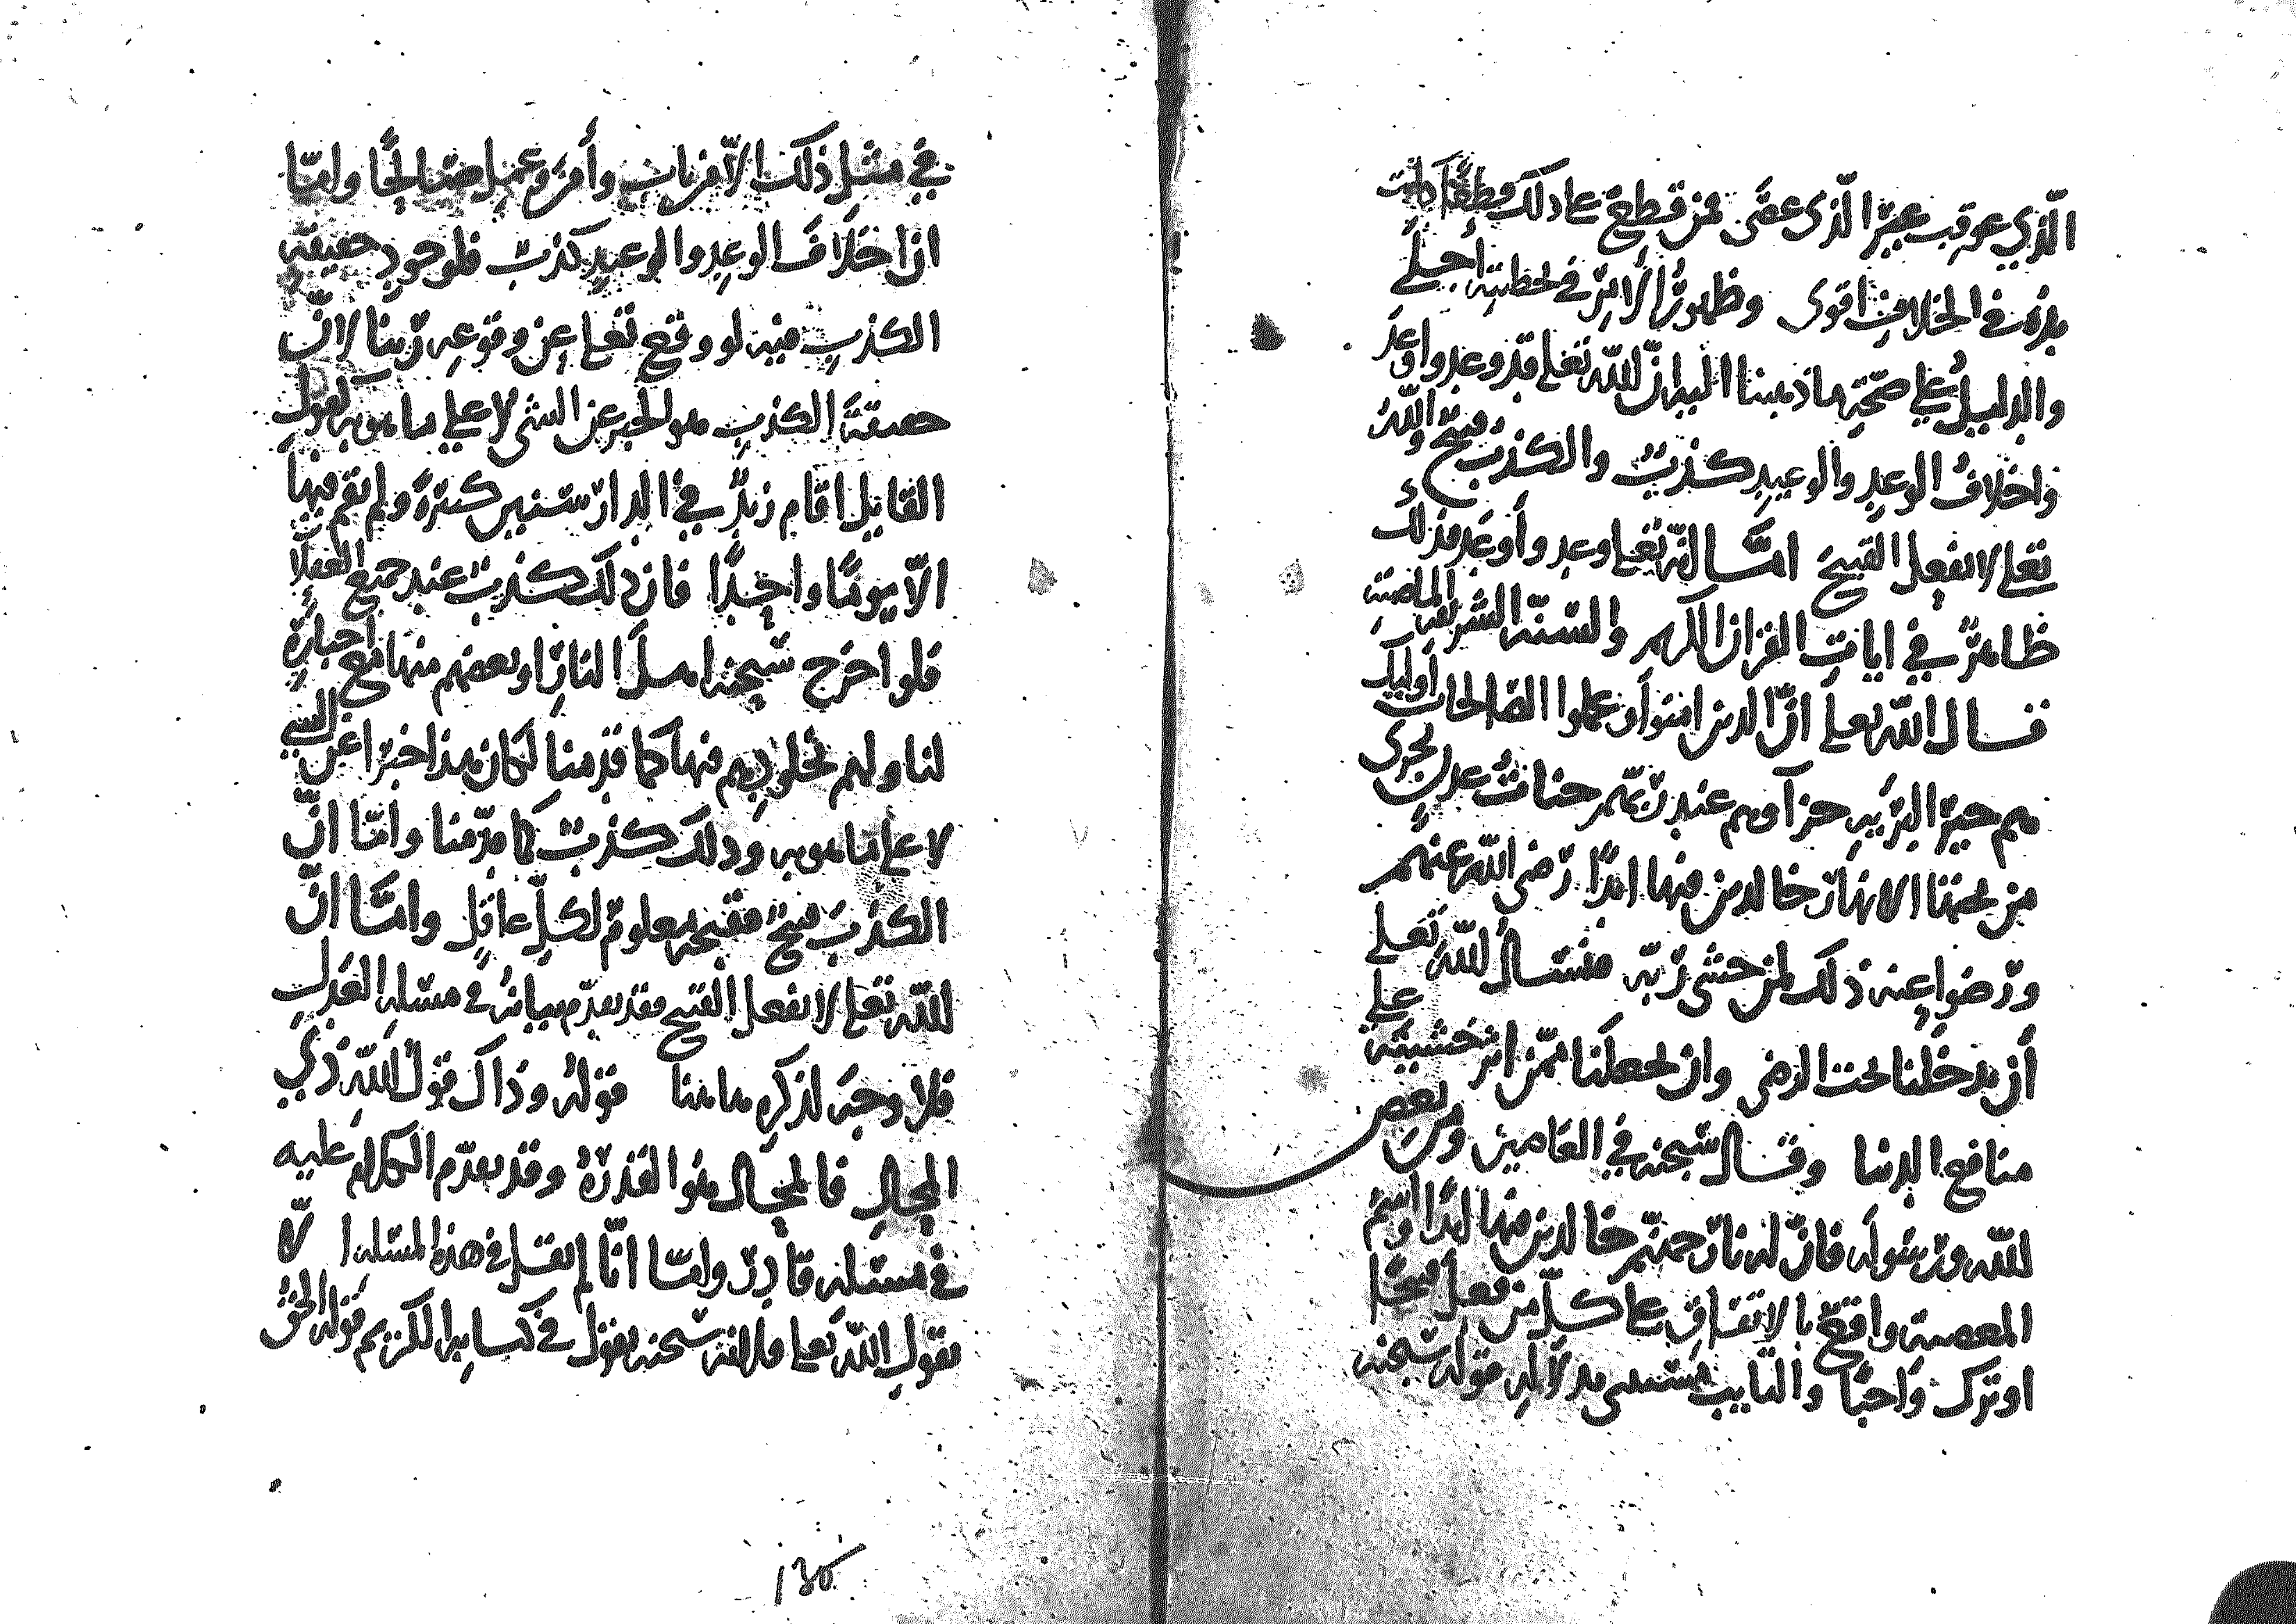 الّذي عوقب غير الذى عصَى فمن قطع على ذلك قطعنا كانت
هذه في الخلاف اقوى وظهورُ الأمر في خطيته أجلى
والدليل على صحّة ما ذهبنا اليه انّ الله تعلى قد وعد واوعد
واخلافُ الوعدِ والوعيدِ كذبٌ والكذب قبيح والله
تعلى لا يفعل القبيح امَّا انّه تعلى وعد وأوعد فذلك
ظاهرٌ في ايات القران الكريم والسنّة الشريفة الماضية
قال الله تعلى انّ الذين امنوا وعملوا الصّالحات اوليك
هم خير البريّه جزآوهم عند ربّهم جنات عدن تجرى
من تحتها الانهار خالدين فيها ابدًا رَضى الله عنهم
ورَضوا عنه ذلك لمن خشى ربّه فنسال الله تعلى
أن يدخلنا تحت الرضى وان يجعلنا ممّن اثر خشيته على
منافع الدنيا وقال سبحنه في العاصين ومن يعص
الله ورسوله فانّ له نار جهنّم خالدين فيها ابدًا واسْم
المعصية واقعٌ بالاتفاق على كلّ من فعل قبيحًا
او ترك واجبًا والتايب مستثنى بدلالة قوله سبحنه
في مثل ذلك الاّ من تاب وأمن وعمل صالحًا وامّا
ان اخلافَ الوعدِ والوعيدِ كذبٌ فلوجودِ حقيقة
الكذبِ فيه لو وقع تعلى عن وقوعه ربّنا لانّ
حقيقة الكذبِ هو الخبر عن الشى لا على ما هو به كقول
القايل اقام زيدٌ في الدار سنين كثيرةً ولم يقم فيها
الاّ يومًا واحدًا فان ذلك كذبٌ عند جميع العقلاء
فلو اخرج سبحنه اهل النار او بعضهم منها مع اخباره
لنا ولهم بخلودهم فيها كما قدمنا لكان هذا خبرًا عن الشي
لا على ما هو به وذلك كذبٌ كما قدّمنا وامّا انّ
الكذبَ قبيحٌ فقبحه معلومٌ لكلّ عاقل وامَّا انّ
الله تعلى لا يفعل القبيح فقد تقدّم بيانه في مسئلة العَدل
فلا وجهَ لذكره هاهنا قوله وذاك قول الله ذي
المحال فالمحال هو القدرة وقد تقدّم الكلام عليه
في مسئلة قادر وامّا انّا لم نقل في هذه المسئلة الاّ
بقول الله تعلى فلانه سبحنه يقول في كتابه الكريم قوله الحق
١٣٥